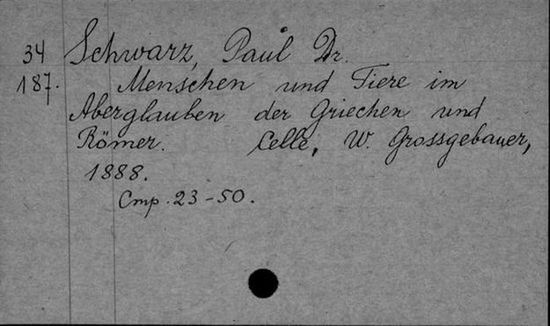 34 Schwarz, Paul Dr.
187. Menschen und Tiere im
Aberglauben der Griechen und
Römer. Celle, W. Grossgebauer,
1888.
Стр. 23-50.